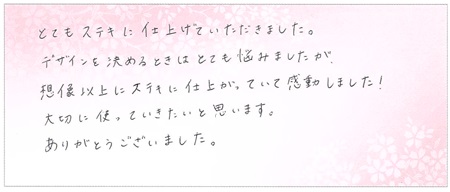 とてもステキに仕上げていただきました。
デザインを決めるときはとても悩みましたが、
想像以上にステキに仕上がっていて感動しました!
大切に使っていきたいと思います。
ありがとうございました。